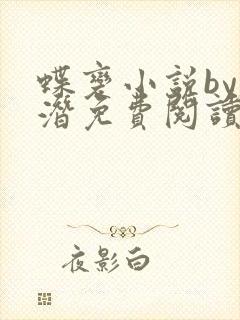 蝶变小说by
潜免費閱讀
夜影白